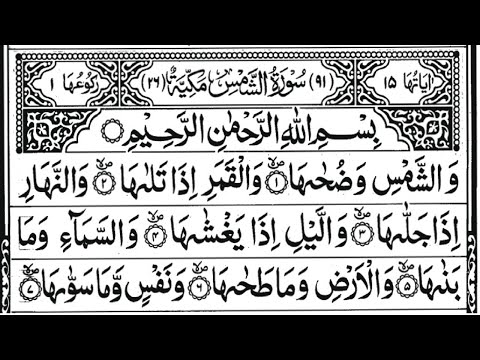 اٰیاتها ١٥ (٩١) سُوْرَةُ الشَّمْسِ مَكِّيَّةٌ (٢٦) رکوعها ١
بِسْمِ اللّٰهِ الرَّحْمٰنِ الرَّحِيْمِ
وَالشَّمْسِ وَضُحٰىهَا ۝١ وَالْقَمَرِ اِذَا تَلٰىهَا ۝٢ وَالنَّهَارِ
اِذَا جَلّٰىهَا ۝٣ وَالَّيْلِ اِذَا يَغْشٰىهَا ۝٤ وَالسَّمَآءِ وَمَا
بَنٰىهَا ۝٥ وَالْاَرْضِ وَمَا طَحٰىهَا ۝٦ وَنَفْسٍ وَّمَا سَوّٰىهَا ۝٧